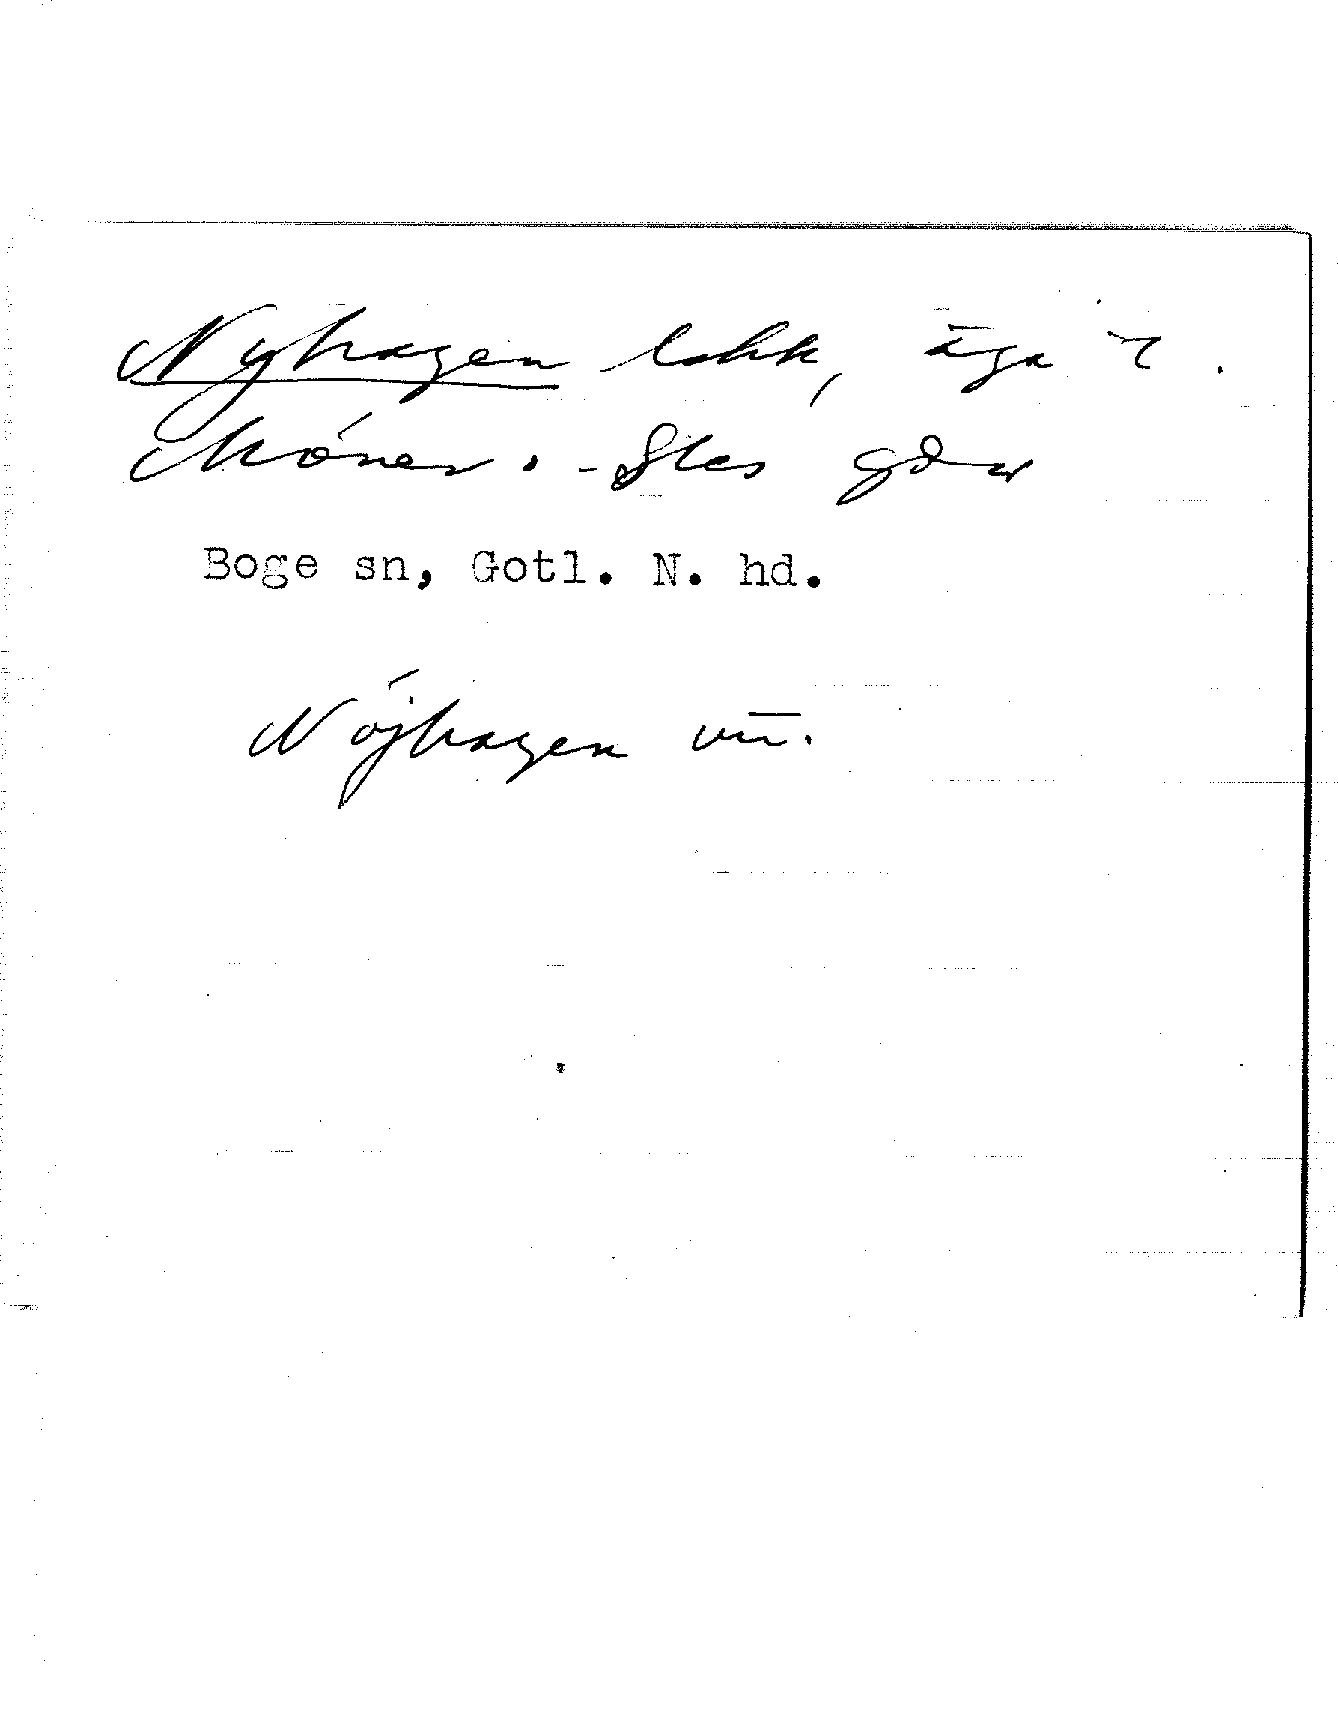 Nyhagen lokk, äga t.
Móner. - Stes gdar
Boge sn, Gotl. N. hd.
Nöjhagen vn̄.